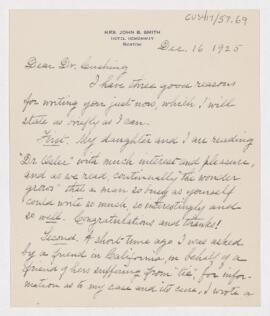 CUS417/57.69
MRS. JOHN B. SMITH
HOTEL HEMENWAY
BOSTON
Dec. 16 1925
Dear Dr. Cushing
I have three good reasons
for writing you just now, which I will
state as briefly as I can.
First. My daughter and I are reading
"Dr Osler" with much interest and pleasure,
and as we read, continually "the wonder
grows" that a man so busy as yourself
could write so much, so interestingly and
so well. Congratulations and thanks!
Second. A short time ago I was asked
by a friend in California, in behalf of a
friend of hers suffering from "tic", for infor-
mation as to my case and its cure. I wrote a